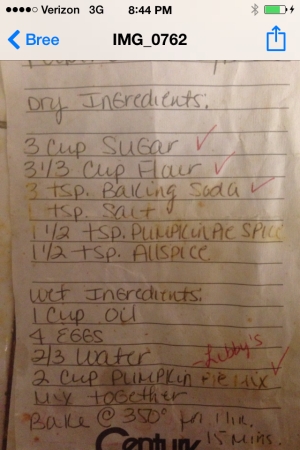 Verizon 3G 8:44 PM
Bree IMG_0762
Dry Ingredients:
3 cup SUGAR
3 1/3 cup Flair
3 tsp. Baking Soda
1 tsp. Salt
1 1/2 tsp. PUMPKin Pie SPICE
1 1/2 tsp. Allspice
Wet Ingredients:
1 cup oil
4 EGGS
2/3 Water
Libby's
2 cup PUMPKin Pie Mix
Mix together
Bake @ 350° for 1 hr.
15 mins.
Century